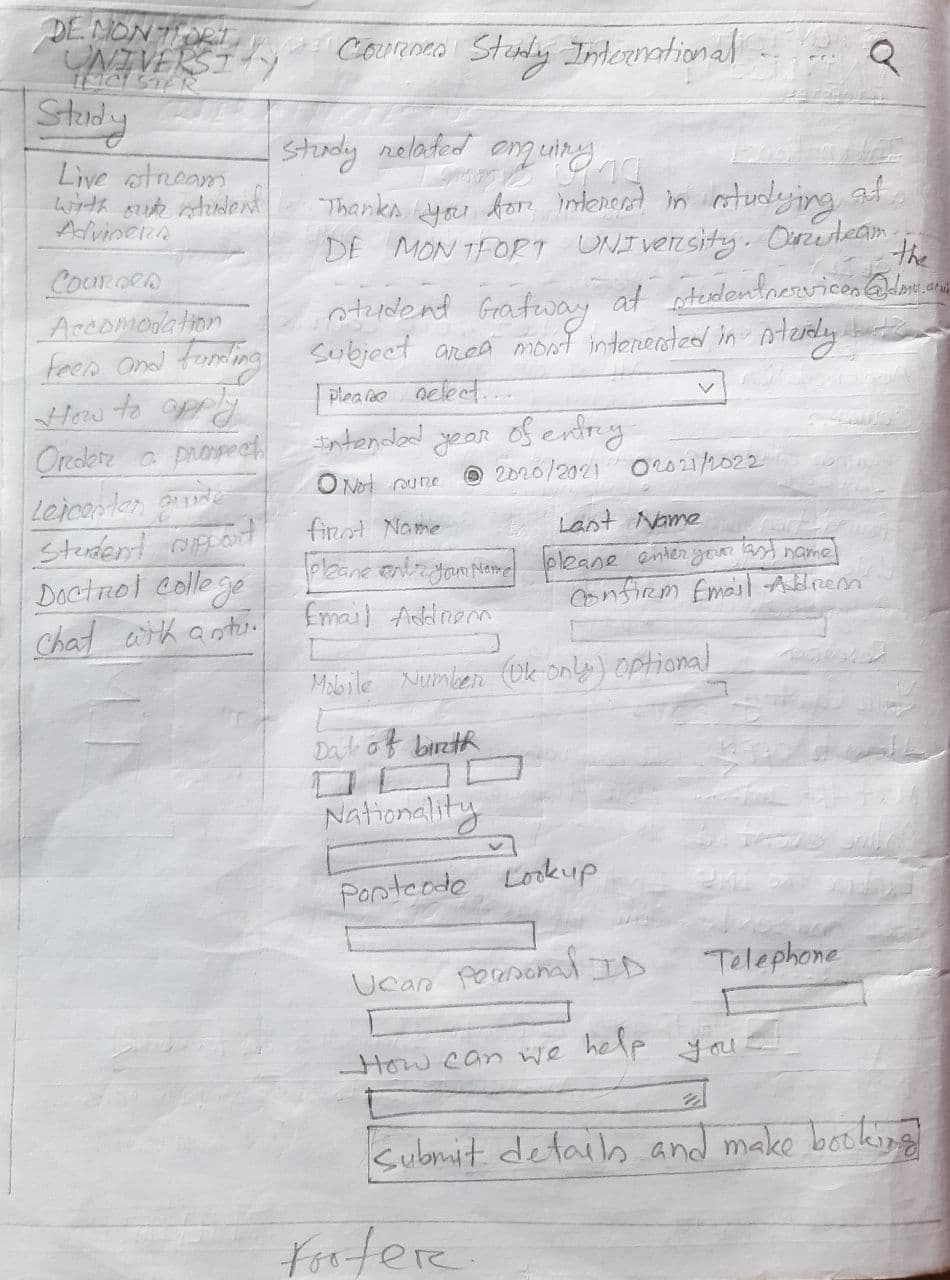 DE MONTFORT
UNIVERSITY
LEICISTER
Courses Study International ... ...
Study
Live stream
with our student
Advisers
Courses
Accomodation
Fees and funding
How to apply
Order a prospect
Leicester guide
Student support
Doctrol college
Chat with a stu.
Study related enquiry
Thanks you for interest in studying at
DE MONTFORT UNIversity. Our team
the
student Gatway at studentservices@dmu.
Subject area most interested in study
please select...
Intended year of entry
Not sure 2020/2021 2021/2022
first Name Last Name
please entr your Name please enter your last name
Email Address Confirm Email Address
Mobile Number (Uk only) optional
Dat of birth
Nationality
Postcode Lookup
Ucas personal ID Telephone
How can we help you
Submit details and make booking
Footer